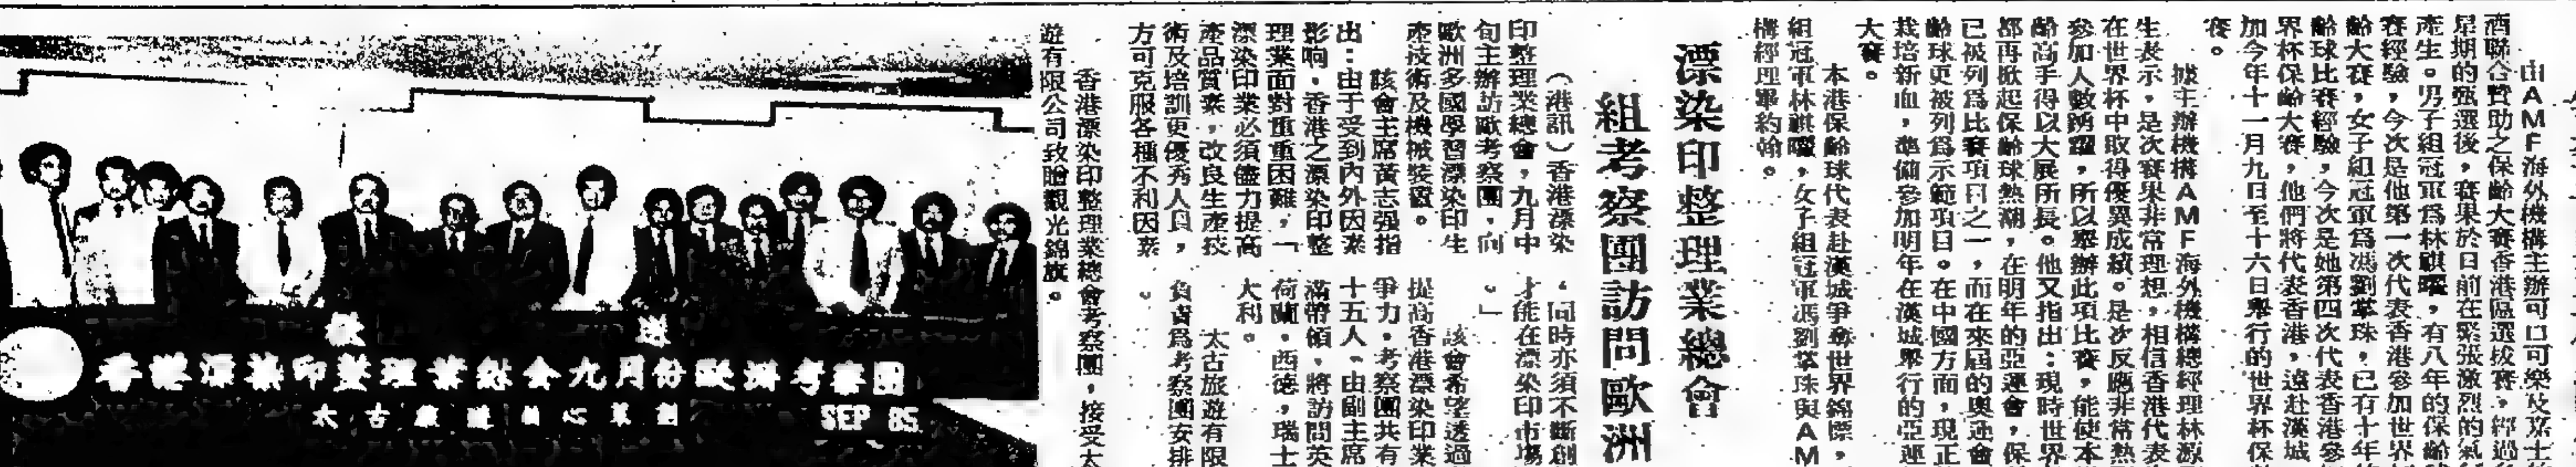 由AMF海外機構主辦可口可樂及嘉士
酒聯合贊助之保齡大賽香港區選拔賽，經過
星期的甄選後，賽果於日前在緊張激烈的氣
產生。男子組冠軍為林麒曜，有八年的保齡
賽經驗，今次是他第一次代表香港參加世界
齡大賽，女子組冠軍為馮劉掌珠，已有十年
齡球比賽經驗，今次是她第四次代表香港參
界杯保齡大賽，他們將代表香港，遠赴漢城
加今年十一月九日至十六日舉行的世界杯保
賽。
據主辦機構AMF海外機構總經理林源
生表示，是次賽果非常理想，相信香港代表
在世界杯中取得優異成績。是次反應非常熱
參加人數踴躍，所以舉辦此項比賽，能使本
齡高手得以大展所長。他又指出：現時世界
都再掀起保齡球熱潮，在明年的亞運會，保
已被列為比賽項目之一，而在來屆的奧運會
齡球更被列為示範項目。在中國方面，現正
栽培新血，準備參加明年在漢城舉行的亞運
大賽。
本港保齡球代表赴漢城爭奪世界錦標，
組冠軍林麒曜，女子組冠軍馮劉掌珠與AM
機構經理畢約翰。
漂染印整理業總會
組考察團訪問歐洲
（港訊）香港漂染
印整理業總會，九月中
旬主辦訪歐考察團，向
歐洲多國學習漂染印生
產技術及機械裝置。
該會主席黃志强指
出：由于受到內外因素
影响，香港之漂染印整
理業面對重重困難，「
漂染印業必須儘力提高
產品質素，改良生產技
術及培訓更優秀人員，
方可克服各種不利因素
，同時亦須不斷創
才能在漂染印市場
。」
該會希望透過
提高香港漂染印業
爭力，考察團共有
十五人，由副主席
滿帶領，將訪問英
荷蘭，西德，瑞士
大利。
太古旅遊有限
負責為考察團安排
。
香港漂染印整理業總會考察團，接受太
遊有限公司致贈觀光錦旗。
敬送
香港漂染印整理業總會九月份歐洲考察團
太古旅遊
SEP 85